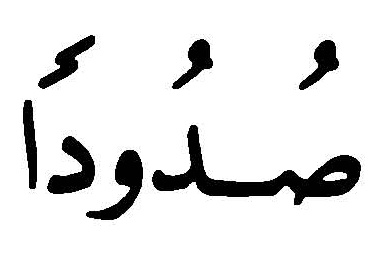 صُدُوداً